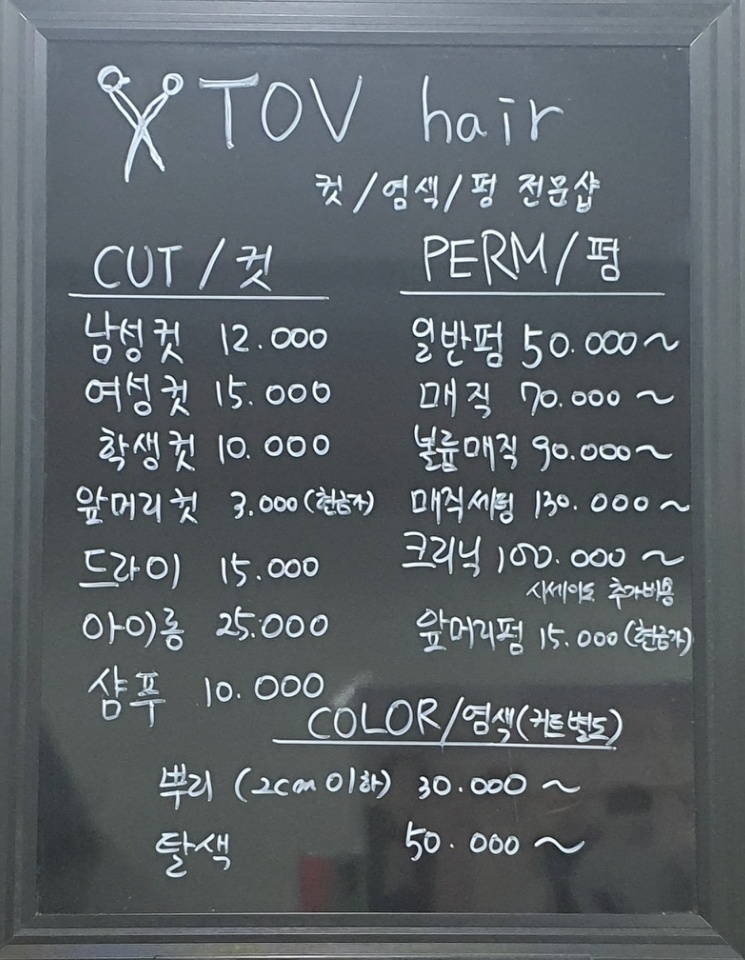 TOV hair
컷/염색/펌 전문샵
CUT/컷
남성컷 12.000
여성컷 15.000
학생컷 10.000
앞머리컷 3.000(현금가)
드라이 15.000
아이롱 25.000
샴푸 10.000
PERM/펌
일반펌 50.000~
매직 70.000~
볼륨매직 90.000~
매직세팅 130.000~
크리닉 100.000~
시세이도 추가비용
앞머리펌 15.000(현금가)
COLOR/염색(커트별도)
뿌리 (2cm이하) 30.000~
탈색 50.000~